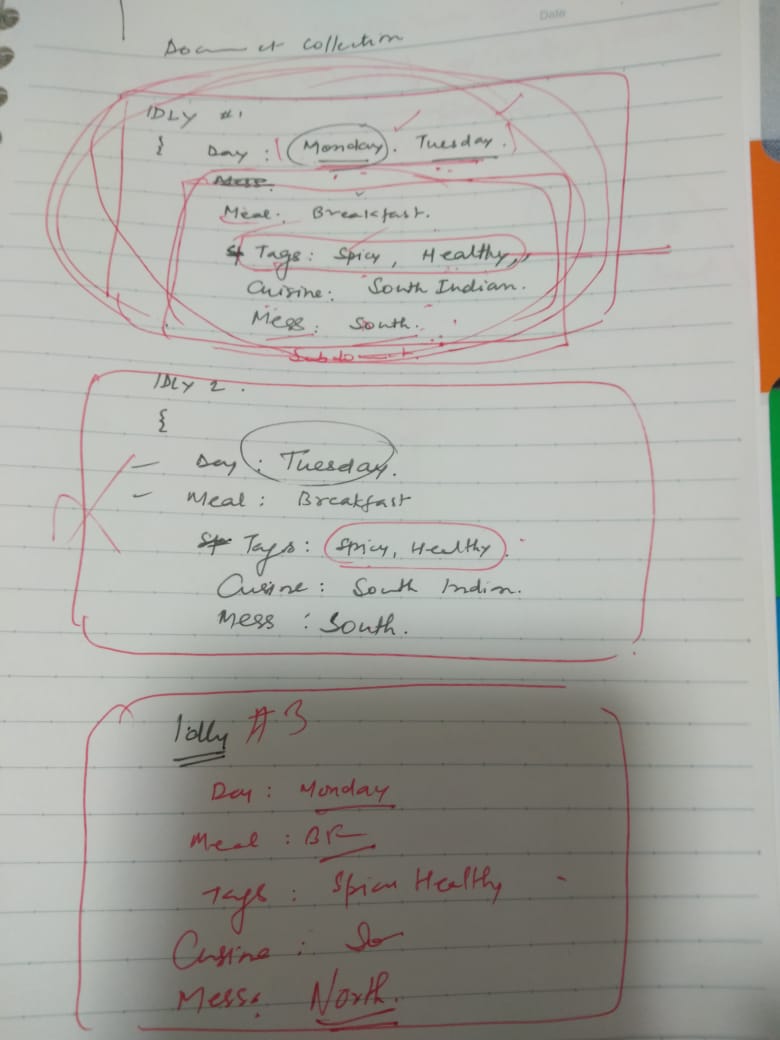 Date
Document collection
IDLY #1
{ Day : [ Monday. Tuesday. ]
Mess:
Meal: Breakfast.
Tags: Spicy, Healthy,
Cuisine: South Indian.
Mess: South.
Subdocument
IDLY 2.
{
- Day : Tuesday.
- Meal : Breakfast
Tags: Spicy, Healthy.
Cusine : South Indian.
Mess : South.
Idly #3
Day : Monday
Meal : BF
Tags : Spicy Healthy -
Cusine : So
Mess: North.